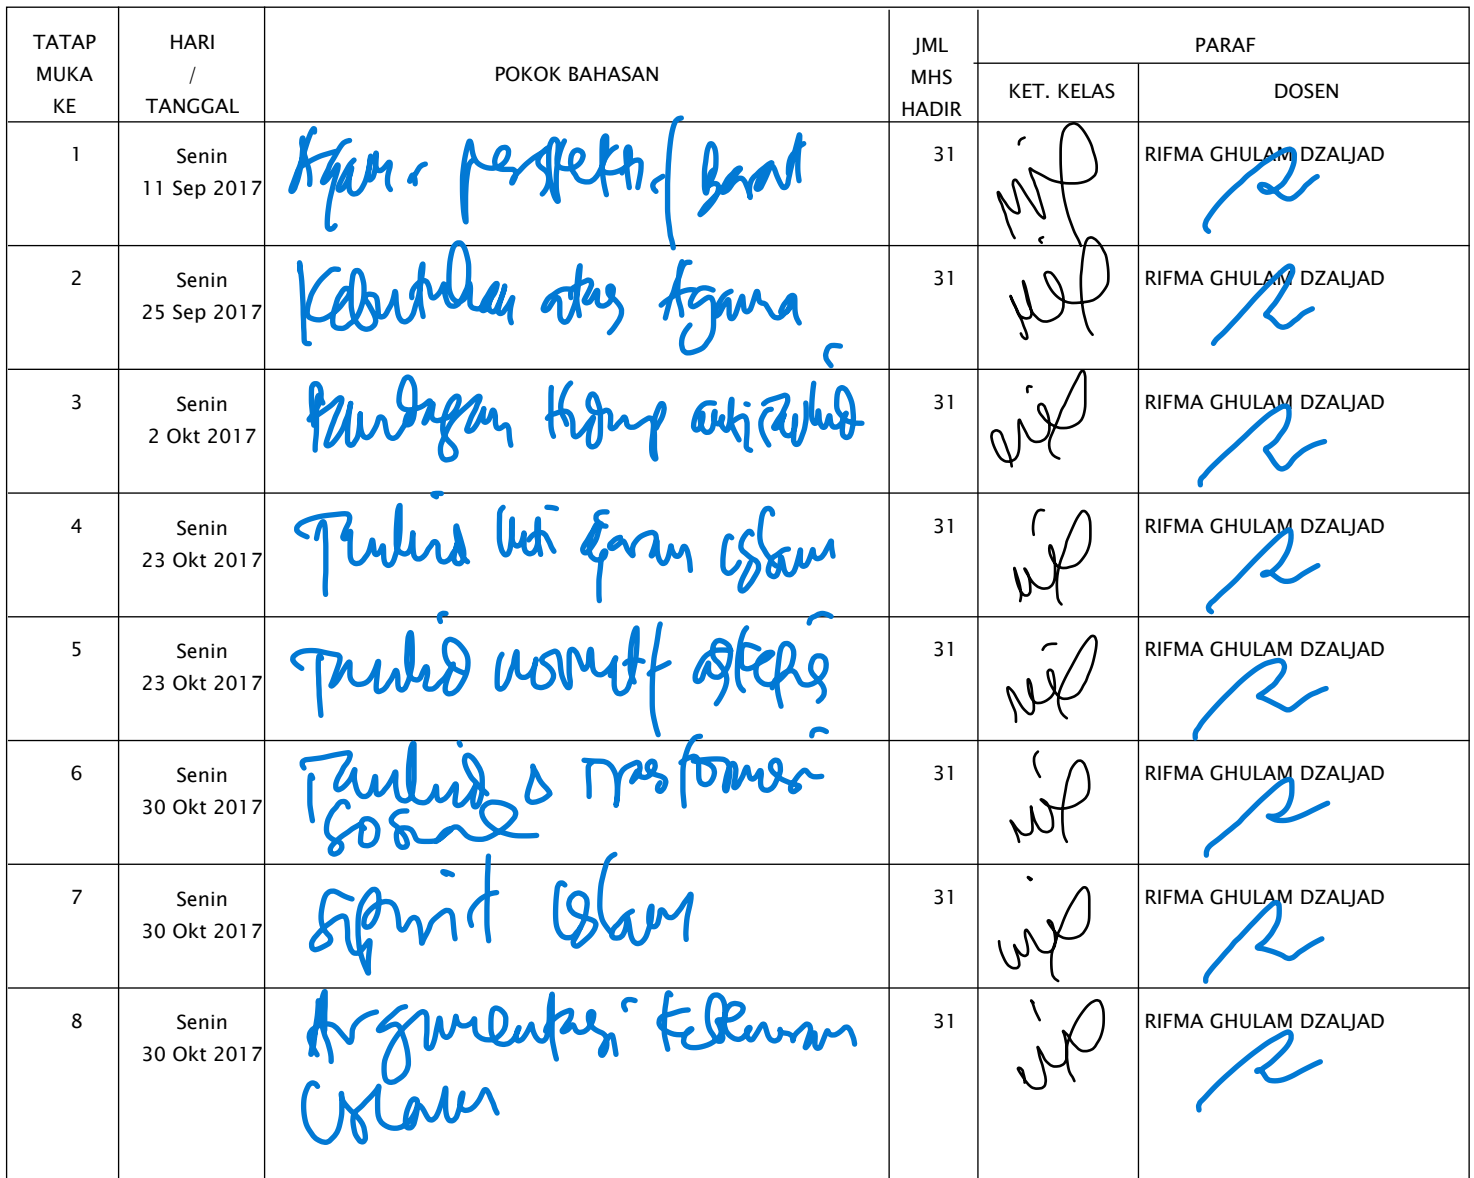 TATAP MUKA KE HARI / TANGGAL POKOK BAHASAN JML MHS HADIR PARAF
KET. KELAS DOSEN
1 Senin 11 Sep 2017 Agama perspektif Barat 31 RIFMA GHULAM DZALJAD
2 Senin 25 Sep 2017 Kebutuhan atas Agama 31 RIFMA GHULAM DZALJAD
3 Senin 2 Okt 2017 Pandangan Hidup anti Tauhid 31 RIFMA GHULAM DZALJAD
4 Senin 23 Okt 2017 Tauhid inti ajaran Islam 31 RIFMA GHULAM DZALJAD
5 Senin 23 Okt 2017 Tauhid 31 RIFMA GHULAM DZALJAD
6 Senin 30 Okt 2017 Tauhid & Trasformasi
Sosial 31 RIFMA GHULAM DZALJAD
7 Senin 30 Okt 2017 Spirit Islam 31 RIFMA GHULAM DZALJAD
8 Senin 30 Okt 2017 Argumentasi
Islam 31 RIFMA GHULAM DZALJAD